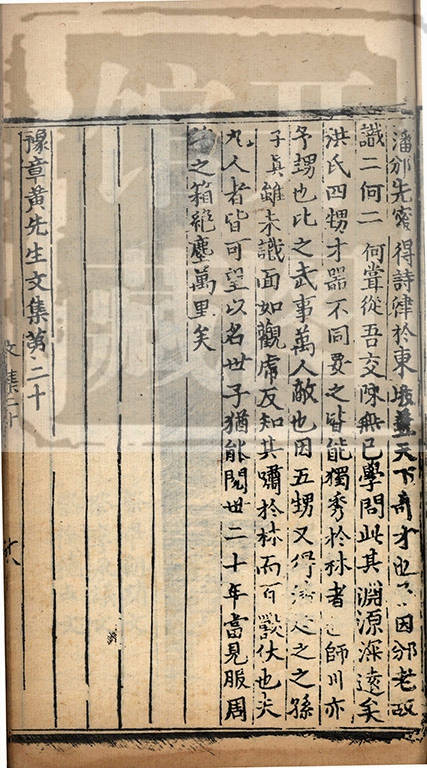 潘邠先密得詩律於東坡蓋天下奇才也因邠老故
識二何二何嘗從吾交陳無己學問此其淵源深遠矣
洪氏四甥才器不同要之皆能獨秀於林者師川亦
予甥也比之武事萬人敵也因五甥又得之之孫
子真雖未識面如觀虎皮知其嘯於林而百獸伏也夫
九人者皆可望以名世予猶能閱世二十年當見服周
之箱絕塵萬里矣
豫章黃先生文集第二十
文集二十